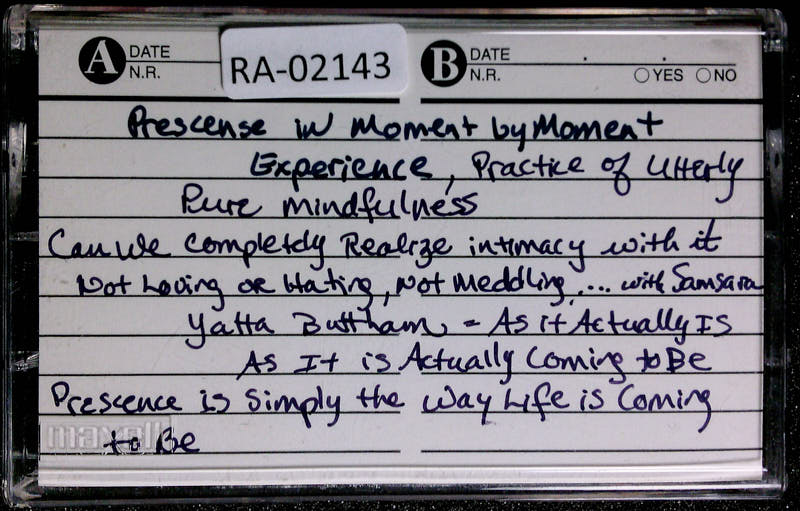 A DATE
N.R.
RA-02143
B DATE
N.R.
YES NO
Prescense in Moment by Moment
Experience, Practice of Utterly
Pure Mindfulness
Can We Completely Realize intimacy with it
Not Loving or Hating, Not Meddling, ... with Samsara
Yatta Buttham = As it Actually Is
As It is Actually Coming to Be
Prescence is Simply the Way Life is Coming
to Be
maxell